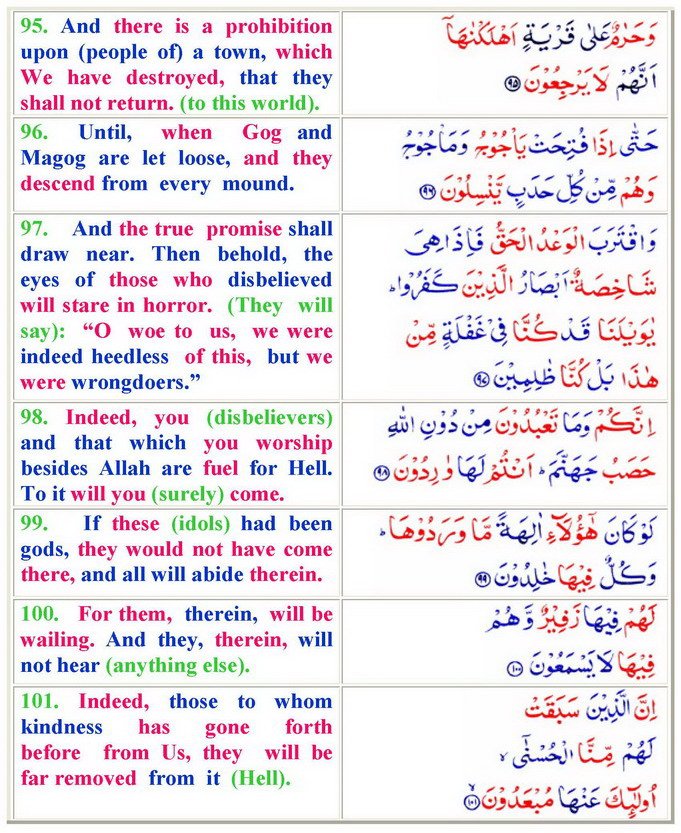 95. And there is a prohibition
upon (people of) a town, which
We have destroyed, that they
shall not return. (to this world).
وَحَرٰمٌ عَلٰى قَرْيَةٍ اَهْلَكْنٰهَاۤ
اَنَّهُمْ لَا يَرْجِعُوْنَ ﴿۹۵﴾
96. Until, when Gog and
Magog are let loose, and they
descend from every mound.
حَتّٰى اِذَا فُتِحَتْ يَاْجُوْجُ وَمَاْجُوْجُ
وَهُمْ مِّنْ كُلِّ حَدَبٍ يَّنْسِلُوْنَ ﴿۹۶﴾
97. And the true promise shall
draw near. Then behold, the
eyes of those who disbelieved
will stare in horror. (They will
say): “O woe to us, we were
indeed heedless of this, but we
were wrongdoers.”
وَاقْتَرَبَ الْوَعْدُ الْحَقُّ فَاِذَا هِىَ
شَاخِصَةٌ اَبْصَارُ الَّذِيْنَ كَفَرُوْا ؕ
يٰوَيْلَنَا قَدْ كُنَّا فِىْ غَفْلَةٍ مِّنْ
هٰذَا بَلْ كُنَّا ظٰلِمِيْنَ ﴿۹۷﴾
98. Indeed, you (disbelievers)
and that which you worship
besides Allah are fuel for Hell.
To it will you (surely) come.
اِنَّكُمْ وَمَا تَعْبُدُوْنَ مِنْ دُوْنِ اللّٰهِ
حَصَبُ جَهَنَّمَ ؕ اَنْتُمْ لَهَا وٰرِدُوْنَ ﴿۹۸﴾
99. If these (idols) had been
gods, they would not have come
there, and all will abide therein.
لَوْ كَانَ هٰۤؤُلَاۤءِ اٰلِهَةً مَّا وَرَدُوْهَا ؕ
وَكُلٌّ فِيْهَا خٰلِدُوْنَ ﴿۹۹﴾
100. For them, therein, will be
wailing. And they, therein, will
not hear (anything else).
لَهُمْ فِيْهَا زَفِيْرٌ وَّهُمْ
فِيْهَا لَا يَسْمَعُوْنَ ﴿۱۰۰﴾
101. Indeed, those to whom
kindness has gone forth
before from Us, they will be
far removed from it (Hell).
اِنَّ الَّذِيْنَ سَبَقَتْ
لَهُمْ مِّنَّا الْحُسْنٰٓى ۙ
اُولٰٓٮِٕكَ عَنْهَا مُبْعَدُوْنَ ﴿۱۰۱﴾